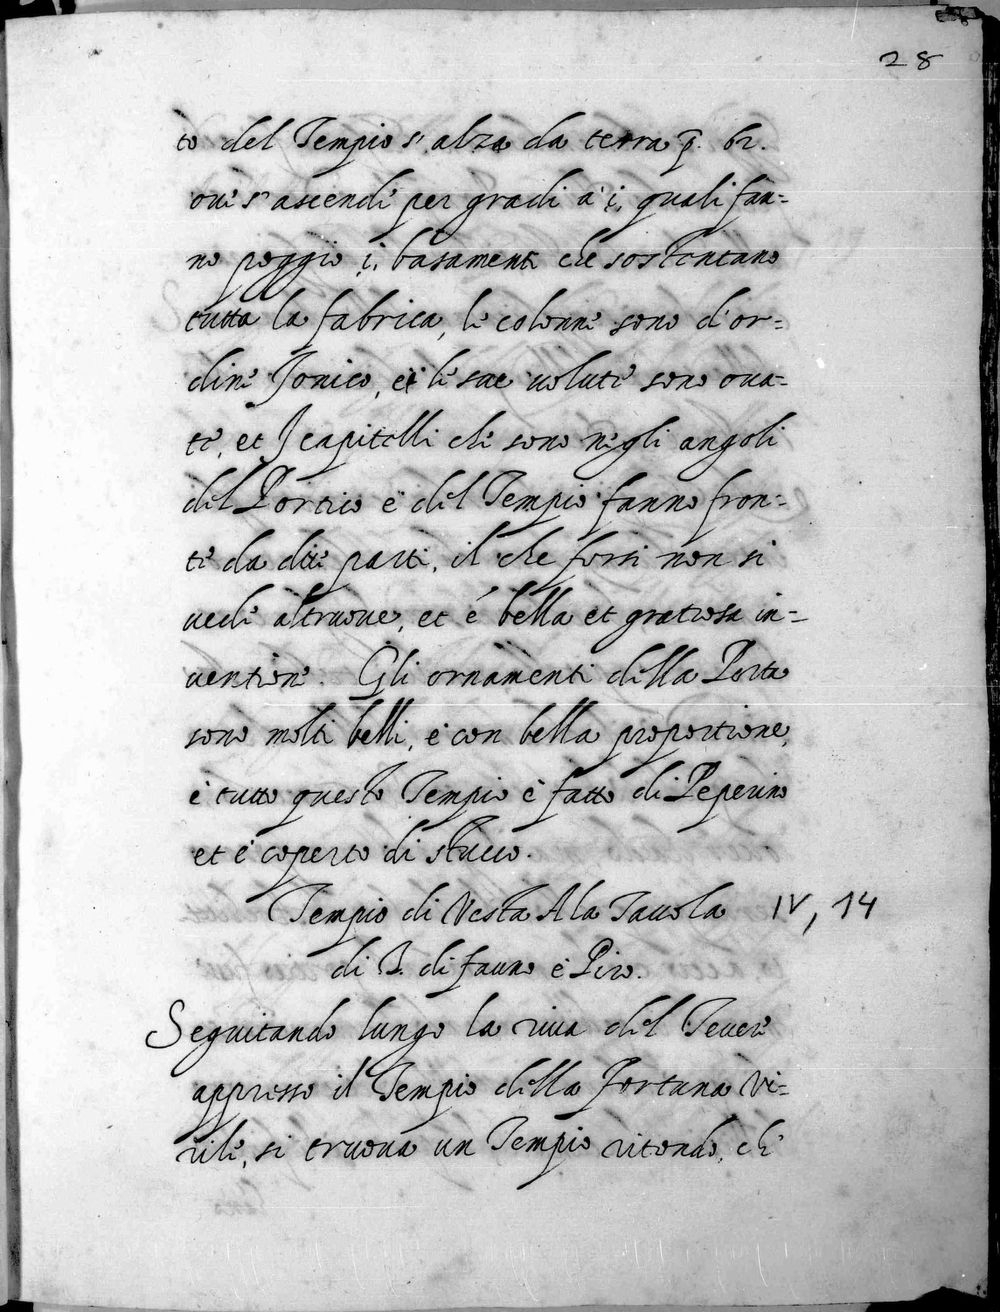 28
to del Tempio s'alza da terra p. 62.
oue s'ascende per gradi à i, quali fan=
no poggio i, basamenti che sostentano
tutta la fabrica, le colonne sono d'or=
dine Jonico, et le sue uolute sono oua=
te, et J capitelli che sono negli angoli
del Portico è del Tempio fanno fron=
te da due parti, il che forsi non si
uede altroue, et é bella et gratiosa in=
uentione. Gli ornamenti della Porta
sono molti belli, é con bella proportione,
è tutto questo Tempio è fatto di Peperino
et é coperto di stucco.
Tempio di Vesta Ala Tauola IV, 14
di B. di fauno è Piro.
Seguitando lungo la riua del Teuere
appresso il Tempio della Fortuna Vi=
rile, si truoua un Tempio ritondo, che